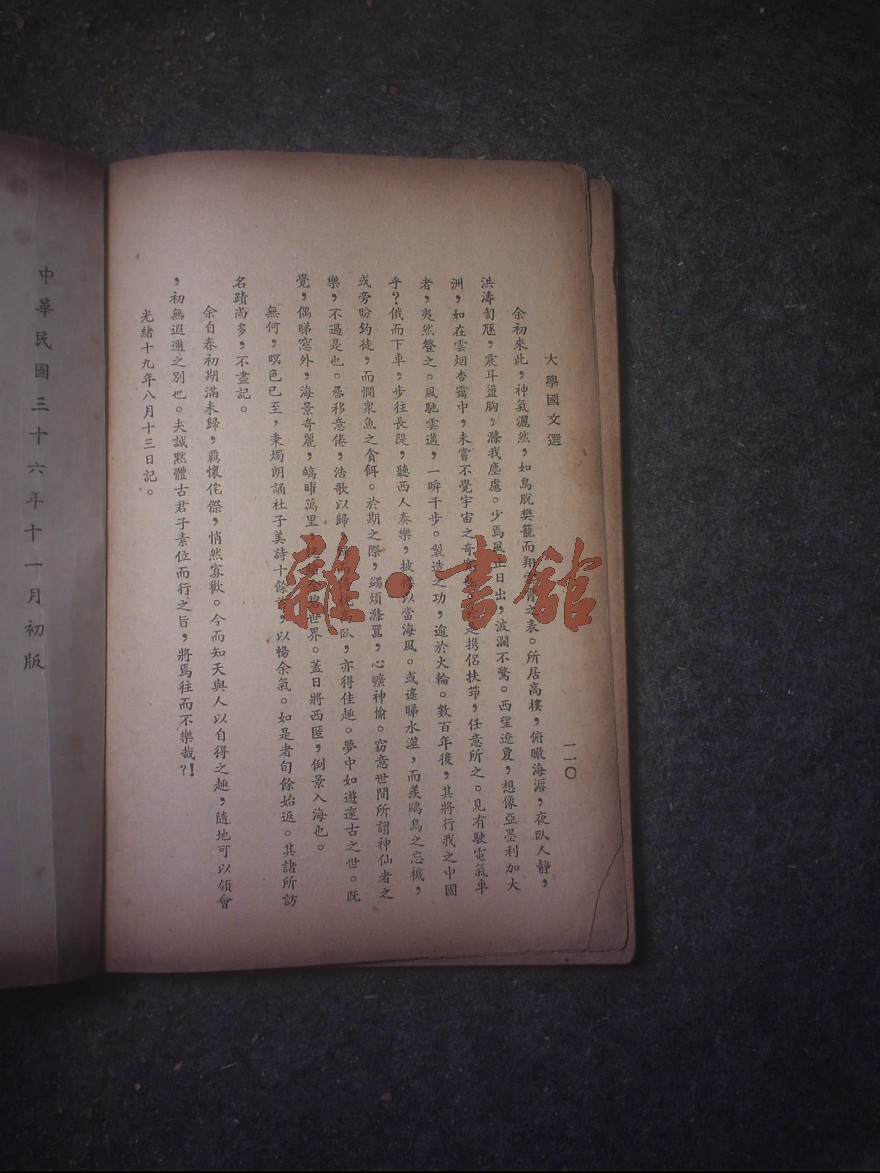 大學國文選
一一〇
余初來此，神氣灑然，如鳥脫樊籠而翔之表。所居高樓，俯瞰海澨，夜臥人靜，
洪濤訇磤，震耳盪胸，滌我塵慮。少焉風止日出，波瀾不驚。西望遼夐，想像亞墨利加大
洲，如在雲烟杳靄中，未嘗不覺宇宙之奇携侶扶筇，任意所之。見有駛電氣車
者，夷然登之。風馳雲邁，一瞬千步。製造之功，逾於火輪。數百年後，其將行我之中國
乎？俄而下車，步往長隄，聽西人奏樂，披以當海風。或遙睇水濱，而羨鷗鳥之忘機，
或旁盼釣徒，而憫衆魚之貪餌。於期之際，蠲煩滌囂，心曠神愉。竊意世間所謂神仙者之
樂，不過是也。晷移意倦，浩歌以歸，臥，亦得佳趣。夢中如遊邃古之世。既
覺，偶睇窓外，海景奇麗，皜曜萬里，世界。蓋日將西匿，倒景入海也。
無何，暝色已至，秉燭朗誦杜子美詩十餘，以暢余氣。如是者旬餘始返。其諸所訪
名蹟尚多，不盡記。
余自春初期滿未歸，羈懷侘傺，悄然寡歡。今而知天與人以自得之趣，隨地可以領會
，初無遐邇之別也。夫誠默體古君子素位而行之旨，將焉往而不樂哉？！
光緒十九年八月十三日記。
中華民國三十六年十一月初版
雜·書館